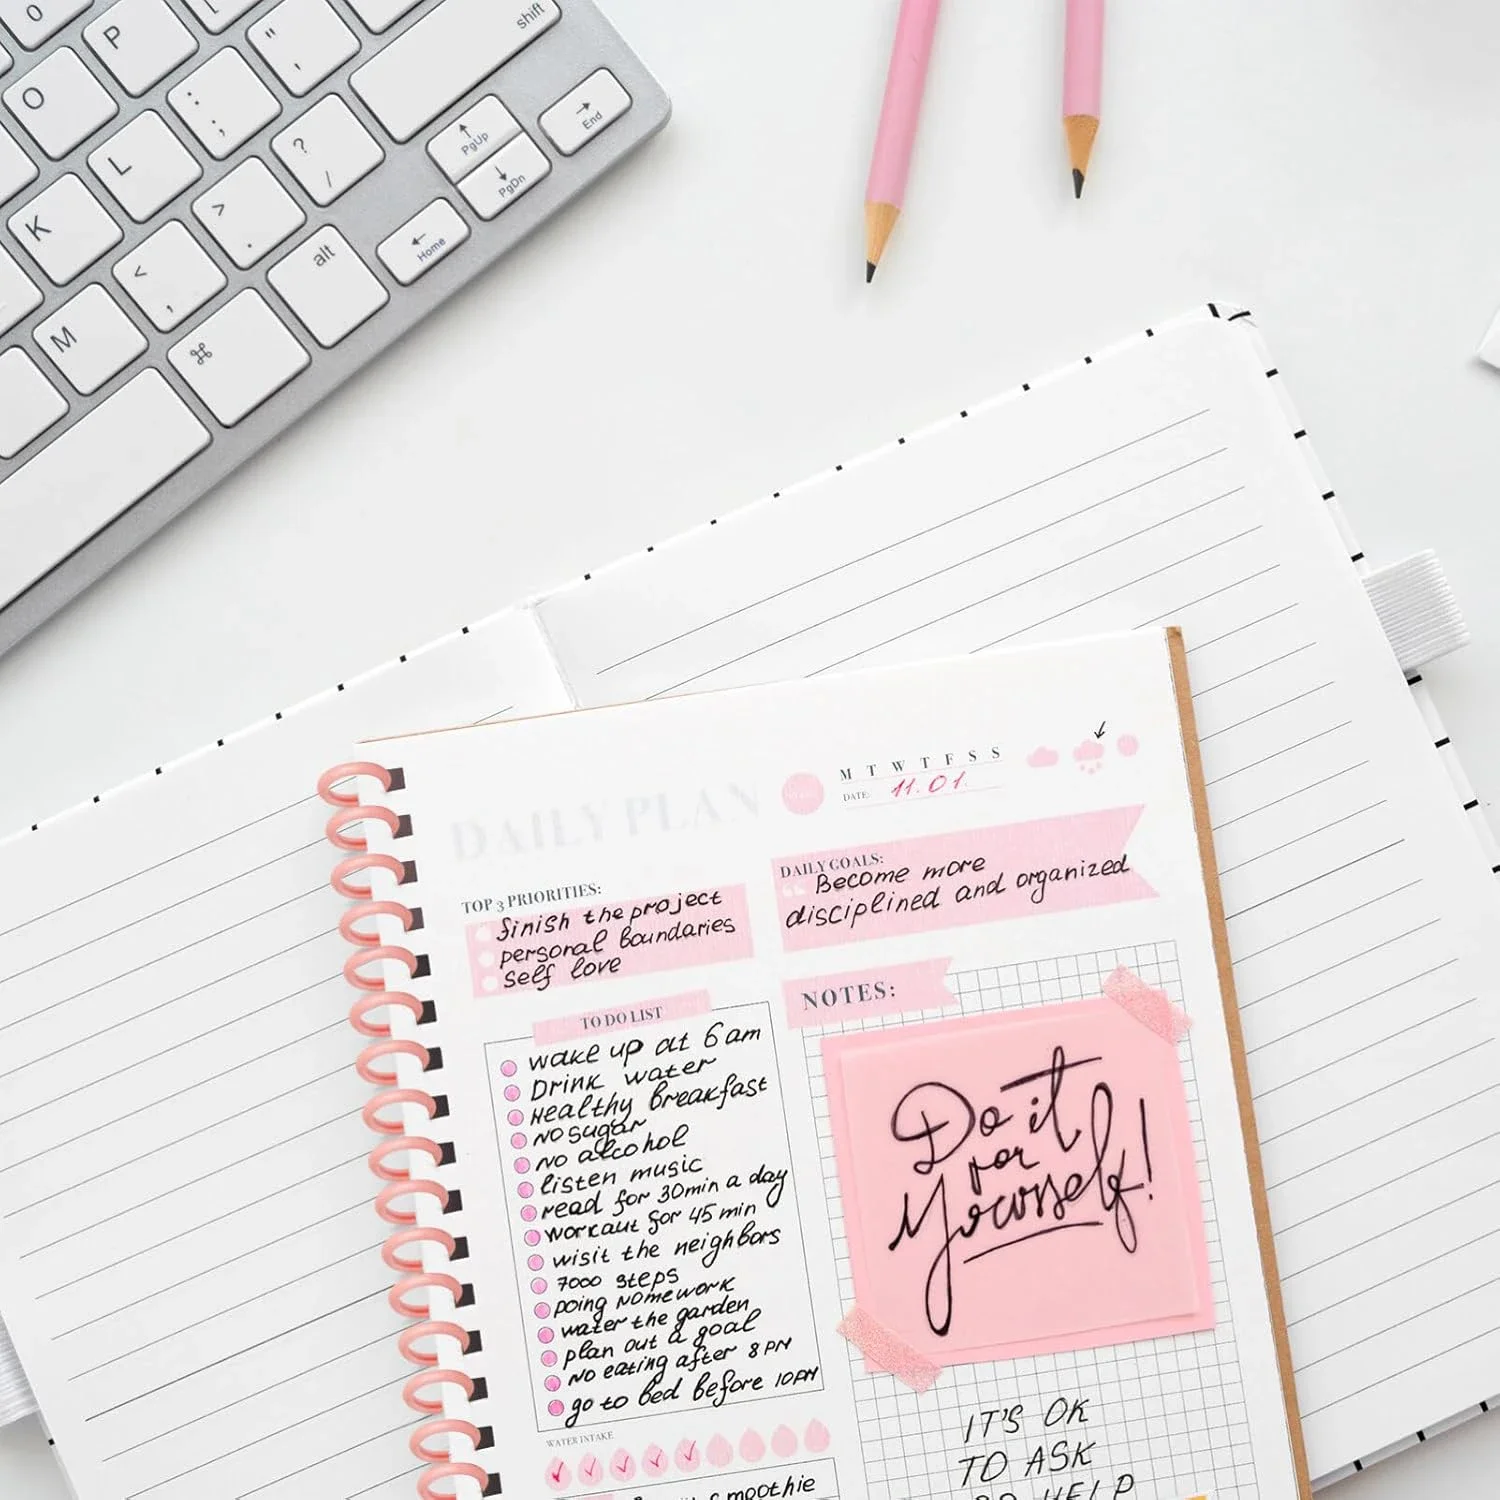 O
P
"
'
shift
O
:
;
?
/
PgUp
End
PgDn
L
K
>
.
alt
Home
<
,
M
⌘
DAILY PLAN
M T W T F S S
DATE: 11.01.
TOP 3 PRIORITIES:
finish the project
personal boundaries
self love
DAILY GOALS:
Become more
disciplined and organized
TO DO LIST
wake up at 6 am
Drink water
Healthy breakfast
NO sugar
NO alcohol
listen music
read for 30min a day
workout for 45 min
wisit the neighbors
7000 steps
Doing Homework
water the garden
plan out a goal
NO eating after 8 PM
go to bed before 10PM
WATER INTAKE
smoothie
NOTES:
Do it
for
Yourself!
IT'S OK
TO ASK
HELP